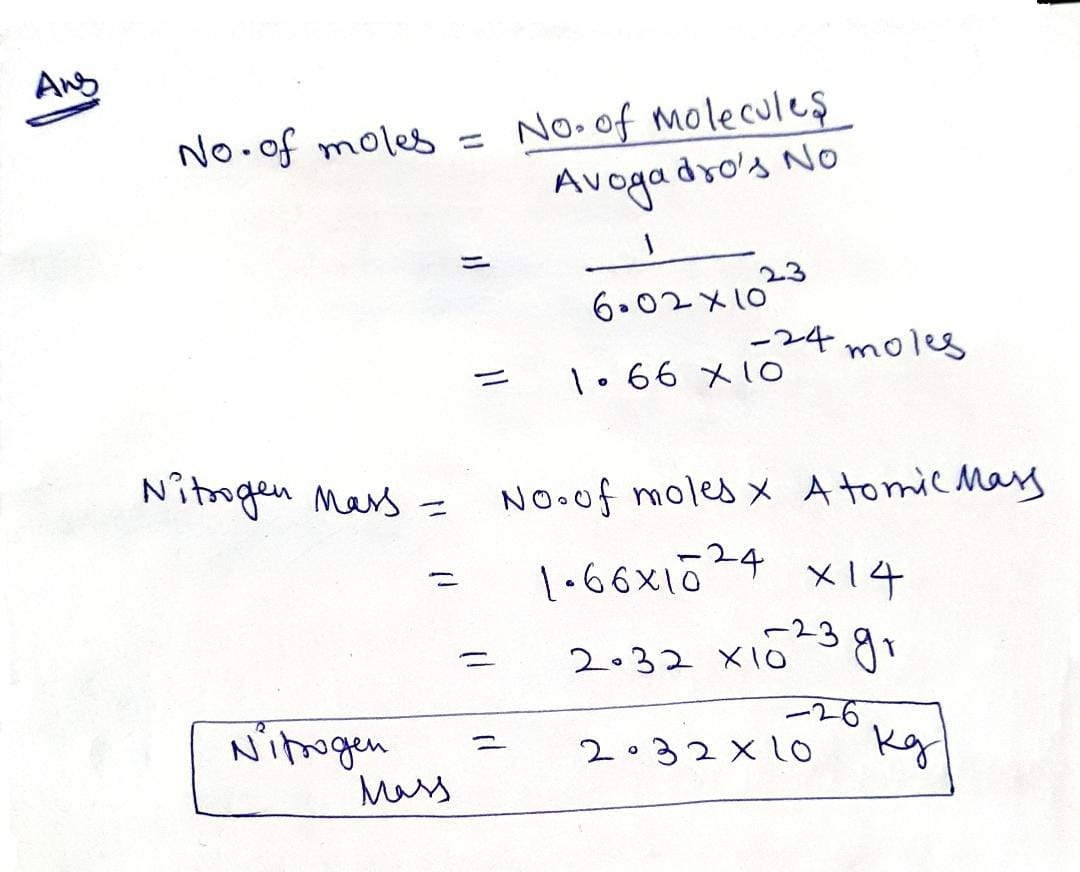 Ans
No. of moles = No. of Molecules
Avogadro's No
= 1
6.02 × 10^23
= 1.66 × 10^-24 moles
Nitrogen Mass = No. of moles × Atomic Mass
= 1.66×10^-24 ×14
= 2.32 ×10^-23 gr
Nitrogen = 2.32×10^-26 kg
Mass